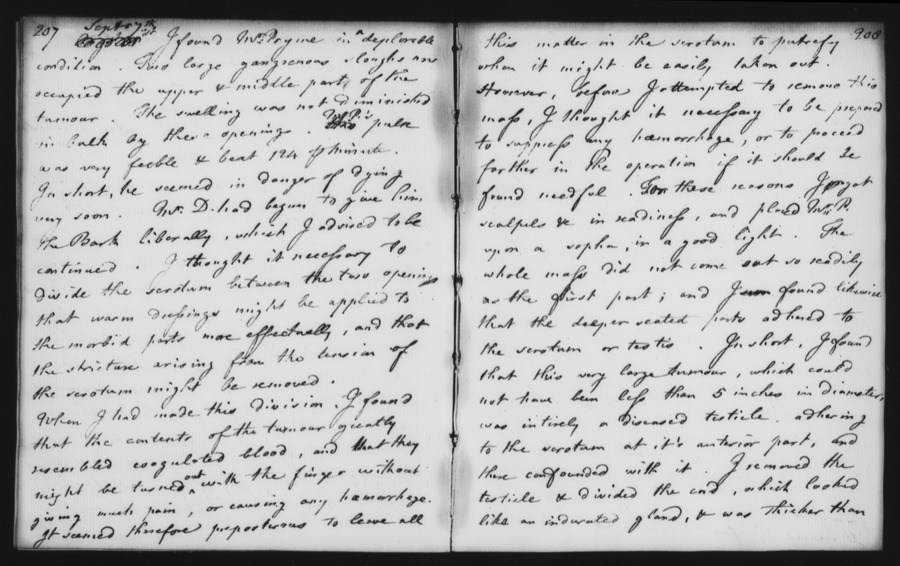 207 Sept. 27th
I found Mr. Payne in a deplorable
condition. Two large gangrenous sloughs now
occupied the upper & middle part of the
tumour. The swelling was not diminished
in bulk by these openings. Mr. P.'s pulse
was very feeble & beat 124 minute.
In short, he seemed in danger of dying
very soon. Mr. D. had begun to give him
the Bark liberally, which I advised to be
continued. I thought it necessary to
divide the scrotum between the two openings
that warm dressings might be applied to
the morbid parts more effectually, and that
the stricture arising from the tension of
the scrotum might be removed.
When I had made this division, I found
that the contents of the tumour greatly
resembled coagulated blood, and that they
might be turned out with the finger without
giving much pain, or causing any hæmorrhage.
It seemed therefore preposterous to leave all
208
this matter in the scrotum to putrefy
when it might be easily taken out.
However, before I attempted to remove this
mass, I thought it necessary to be prepared
to suppress any hæmorrhage, or to proceed
farther in the operation if it should be
found needful. For these reasons I got
scalpels &c in readiness, and placed Mr. P.
upon a sopha, in a good light. The
whole mass did not come out so readily
as the first part; and I found likewise
that the deeper seated parts adhered to
the scrotum or testis. In short, I found
that this very large tumour, which could
not have been less than 5 inches in diameter,
was intirely a diseased testicle adhering
to the scrotum at it's anterior part, and
there confounded with it. I removed the
testicle & divided the cord, which looked
like an indurated gland, & was thicker than